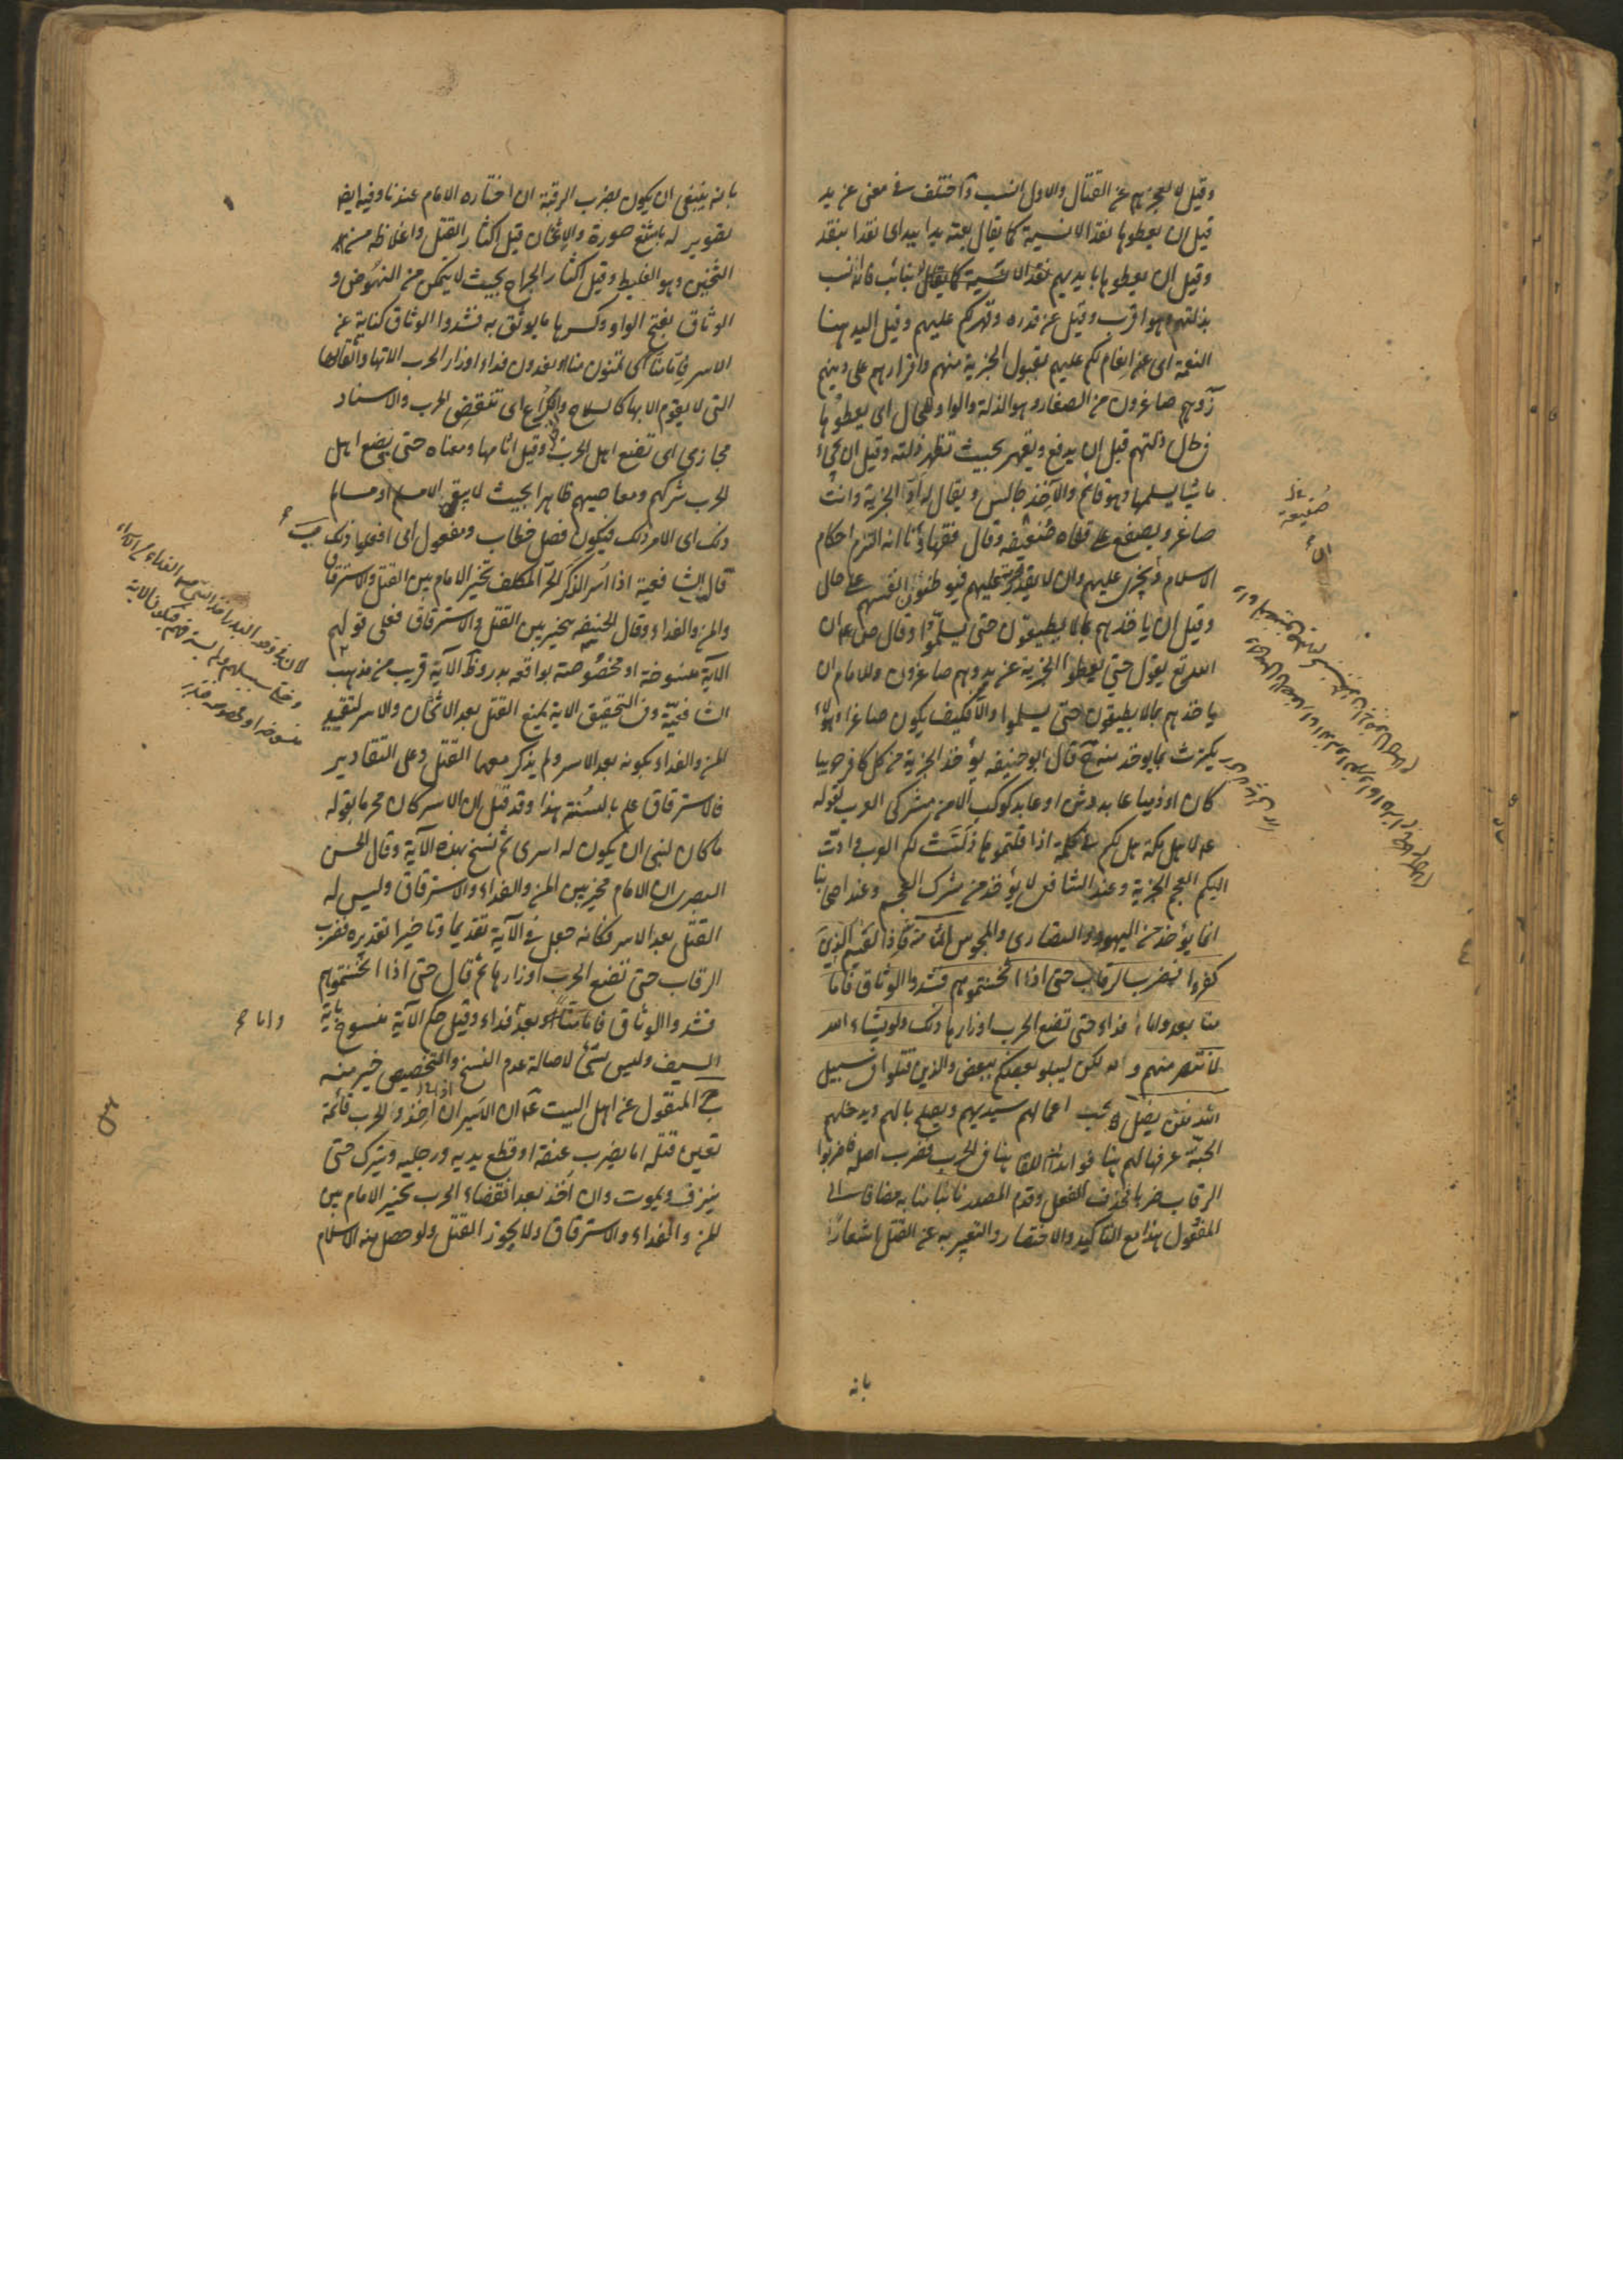 وقيل لا يعجزهم عن القتال والاول انسب وآختلف في معنى عن يد
قيل ان يعطوها نقدا لا نسية كما يقال بعته يدا بيد اى نقدا بنقد
وقيل ان يعطوها بايديهم نقدا لا نسية كما يقال لا بنائب فانه انسب
بذلتهم وهو اقرب وقيل عن قدرة وقهر لكم عليهم وقيل اليد هنا
النعمة اى عن انعام لكم عليهم بقبول الجزية منهم واقرارهم على دينهم
وهم صاغرون من الصغار وهو الذلة والواو للحال اى يعطوها
في حال ذلتهم قيل ان يدفع ويقهر بحيث تظهر ذلته وقيل ان يجيء
ماشيا يسلمها وهو قائم والآخذ جالس ويقال له ادّ الجزية وانت
صاغر ويصفع على قفاه صفيقة وقال فقهاؤنا انه التزم احكام
الاسلام وتجرى عليهم وان لا يقدر عليهم فيوطنون انفسهم على حال
وقيل ان ياخذهم بما لا يطيقون حتى يسلموا وقال ص ع ان
الله تع يقول حتى يعطوا الجزية عن يد وهم صاغرون وللامام ان
ياخذهم بما لا يطيقون حتى يسلموا والا فكيف يكون صاغرا وهو لا
يكترث بما يوخذ منه ج قال ابو حنيفه يؤخذ الجزية من كل كافر حربيا
كان او ذميا عابد وثن او عابد كوكب الا من مشركى العرب لقوله
ع لاهل مكة هل لكم في كلمة اذا قلتموها دانت لكم العرب وادّت
اليكم العجم الجزية وعند الشافعى لا يؤخذ من مشرك العجم وعند اصحابنا
انما يؤخذ من اليهود والنصارى والمجوس الثامنة فاذا لقيتم الذين
كفروا فضرب الرقاب حتى اذا اثخنتموهم فشدوا الوثاق فاما
منا بعد واما فداء حتى تضع الحرب اوزارها ذلك ولو يشاء الله
لانتصر منهم ولكن ليبلو بعضكم ببعض والذين قتلوا في سبيل
الله فلن يضل اعمالهم سيهديهم ويصلح بالهم ويدخلهم
الجنة عرفها لهم هنا فوائد ا اللقا هنا في الحرب فضرب اصله فاضربوا
الرقاب ضربا فحذف الفعل وقدم المصدر نائبا منابه مضافا الى
المفعول هذا مع التاكيد والاختصار والتعبير به عن القتل اشعارا
بانه
بانه ينبغى ان يكون بضرب الرقبة ان اختاره الامام عندنا وفيه ايضا
تصوير له باشنع صورة والاثخان قيل اكثار القتل واغلاظه من
الثخين وهو الغليظ وقيل اكثار الجراح بحيث لا يتمكن من النهوض و
الوثاق بفتح الواو وكسرها ما يوثق به فشدوا الوثاق كناية عن
الاسر فامّا منا اى تمنون منا او يفدون فداء اوزار الحرب آلاتها واثقالها
التى لا يقوم الا بها كالسلاح والكراع اى تنقضي الحرب والاسناد
مجازى اى تضع اهل الحرب وقيل اثامها ومعناه حتى يضع اهل
الحرب شركهم ومعاصيهم ظاهرا بحيث لا يبقى الا مسلم او مسالم
ذلك اى الامر ذلك فيكون فصل خطاب ومفعول اى افعلوا ذلك
قال الشافعية اذا اسر الذكر الحر المكلف تخير الامام بين القتل والاسترقاق
والمن والفداء وقال الحنيفة يتخير بين القتل والاسترقاق فعلى قولهم
الآية منسوخة او مخصوصة بواقعة بدر وظ الآية قريب من مذهب
الشافعيّة وفى التحقيق الاية يمنع القتل بعد الاثخان والاسر لتقييد
المن والفداء بكونه بعد الاسر ولم يذكر معهما القتل وعلى التقادير
فالاسترقاق علم بالسنة هذا وقد قيل ان الاسر كان محرما بقوله
ما كان لنبى ان يكون له اسرى ثم نسخ بهذه الآية وقال الحسن
البصرى ان الامام مخير بين المن والفداء والاسترقاق وليس له
القتل بعد الاسر فكانه جعل في الآية تقديما وتاخيرا تقديره فضرب
الرقاب حتى تضع الحرب اوزارها ثم قال حتى اذا اثخنتموهم
فشدوا الوثاق فاما منّا بعد فداء وقيل حكم الآية منسوخ باية
واما
السيف وليس بشئ لاصالة عدم النسخ والتخصيص خير منه
ج المنقول عن اهل البيت ع ان الاسير ان اخذ والحرب قائمة
تعين قتله اما بضرب عنقه او قطع يديه ورجليه ويترك حتى
ينزف ويموت وان اخذ بعد انقضاء الحرب تخير الامام بين
المن والفداء والاسترقاق ولا يجوز القتل ولو حصل منه الاسلام